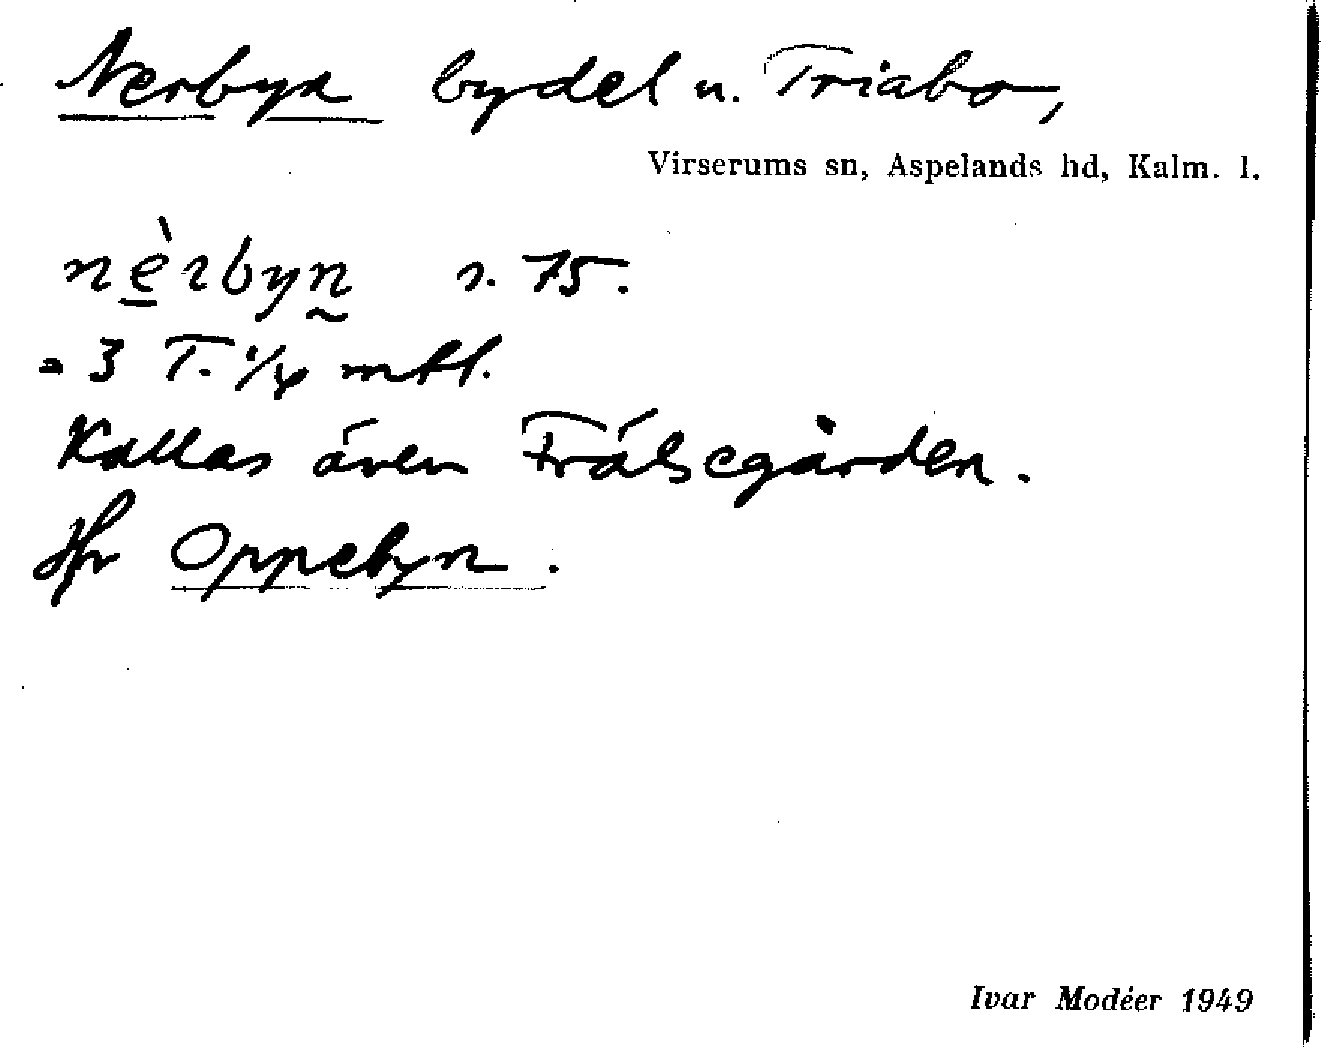 Nerbyn bydel u. Triabo,
Virserums sn, Aspelands hd, Kalm. l.
nèrbyn s. 75.
= 3 T. 1/4 mtl.
Kallas även Frälsegården.
Jfr Oppebyn.
Ivar Modéer 1949